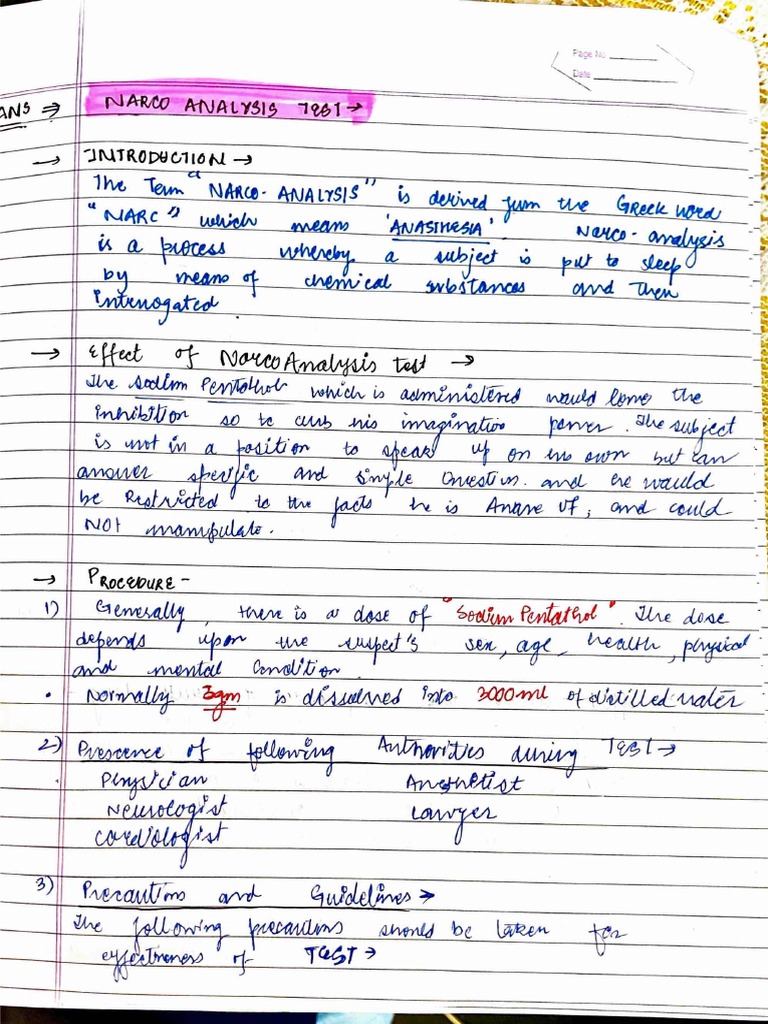 Page No
Date
ANS ⇒ NARCO ANALYSIS TEST →
→ INTRODUCTION →
The Term "NARCO-ANALYSIS" is derived from the GREEK WORD
"NARC" which means 'ANASTHESIA'. Narco-analysis
is a process whereby a subject is put to sleep
by means of chemical substances and then
interrogated.
→ Effect of NarcoAnalysis test →
The Sodium Pentathol which is administered would lower the
inhibition so to curb his imagination power. The subject
is not in a position to speak up on his own but can
answer specific and simple question. and he would
be Restricted to the facts he is Aware of, and could
NOT manipulate.
→ PROCEDURE-
1) Generally, there is a dose of "Sodium Pentathol". The dose
depends upon the suspect's sex, age, health, physical
and mental condition.
• Normally 3gm is dissolved into 3000ml of distilled water
2) Prescence of following Authorities during TEST →
Physician Anesthetist
Neurologist Lawyer
Cardiologist
3) Precautions and Guidelines →
The following precautions should be taken for
effectiveness of TEST →